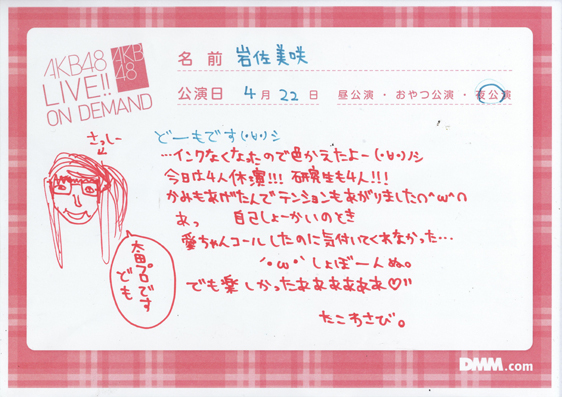 AKB48
LIVE!!
ON DEMAND
AKB
48
名前 岩佐美咲
公演日 4月22日 昼公演・おやつ公演・夜公演
どーもです(・∀・)シ
…インクなくなったので色かえたよー(・∀・)ノシ
今日は4人休演!!! 研究生も4人!!!
かみもあげたんでテンションもあがりました∩^ω^∩
あっ 自己しょーかいのとき
愛ちゃんコールしたのに気付いてくれなかった…
´・ω・`しょぼーんぬ。
でも楽しかったぁぁぁぁぁぁ♡"
たこわさび。
さっしー
太田プロです
ども
DMM.com